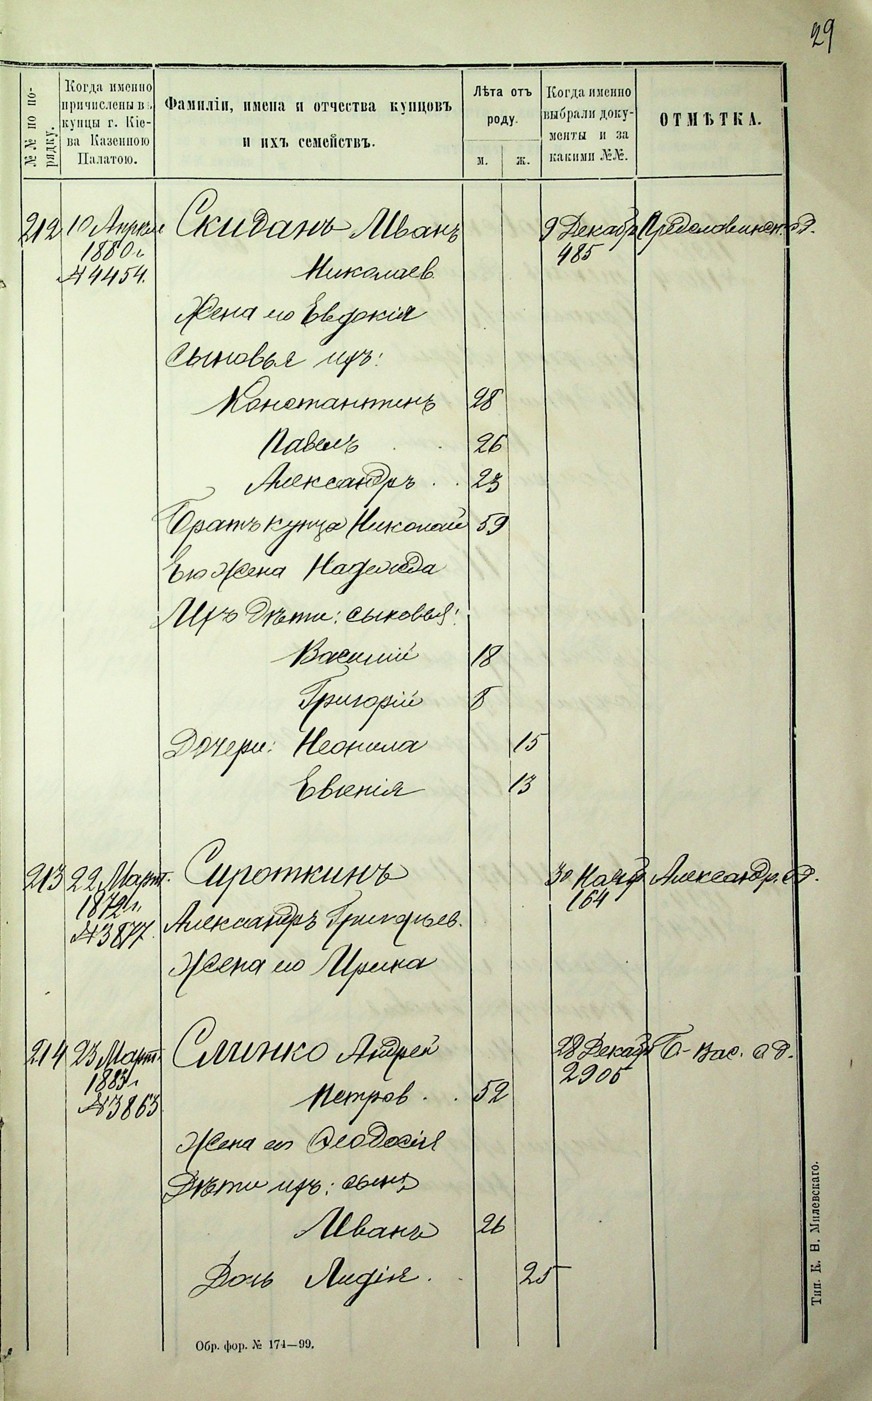 29
№№ по по-
рядку.
Когда именно
причислены въ
купцы г. Кіе-
ва Казенною
Палатою.
Фамиліи, имена и отчества купцовъ
и ихъ семействъ.
Лѣта отъ
роду.
м. ж.
Когда именно
выбрали доку-
менты и за
какими №№.
ОТМѢТКА.
212 10 Апрѣл Скиданъ Иванъ 9 Декабр Предславинск. д.
1880 г. 485
№ 4454. Николаев
Жена его Евдокія
Сыновья ихъ:
Константинъ 28
Павелъ 26
Александръ 23
Братъ купца Николай 59
Его Жена Надежда
Ихъ дѣти: сыновья:
Василий 18
Григорій 8
Дочери: Неонила 15
Евгенія 13
213 22 Март. Сироткинъ 30 Нояб Александр. д.
187 г. 164
№ 3877. Александръ Григорьев.
Жена его Ирина
214 23 Март. Слинко Андрей 28 Декабр Б-Вас. д.
188 г. 2905
№ 3863 Петров 52
Жена его Ѳеодосія
Дѣти ихъ: сынъ
Иванъ 26
Дочь Лидія 25
Обр. фор. № 174—99.
Тип. К. Н. Милевскаго.